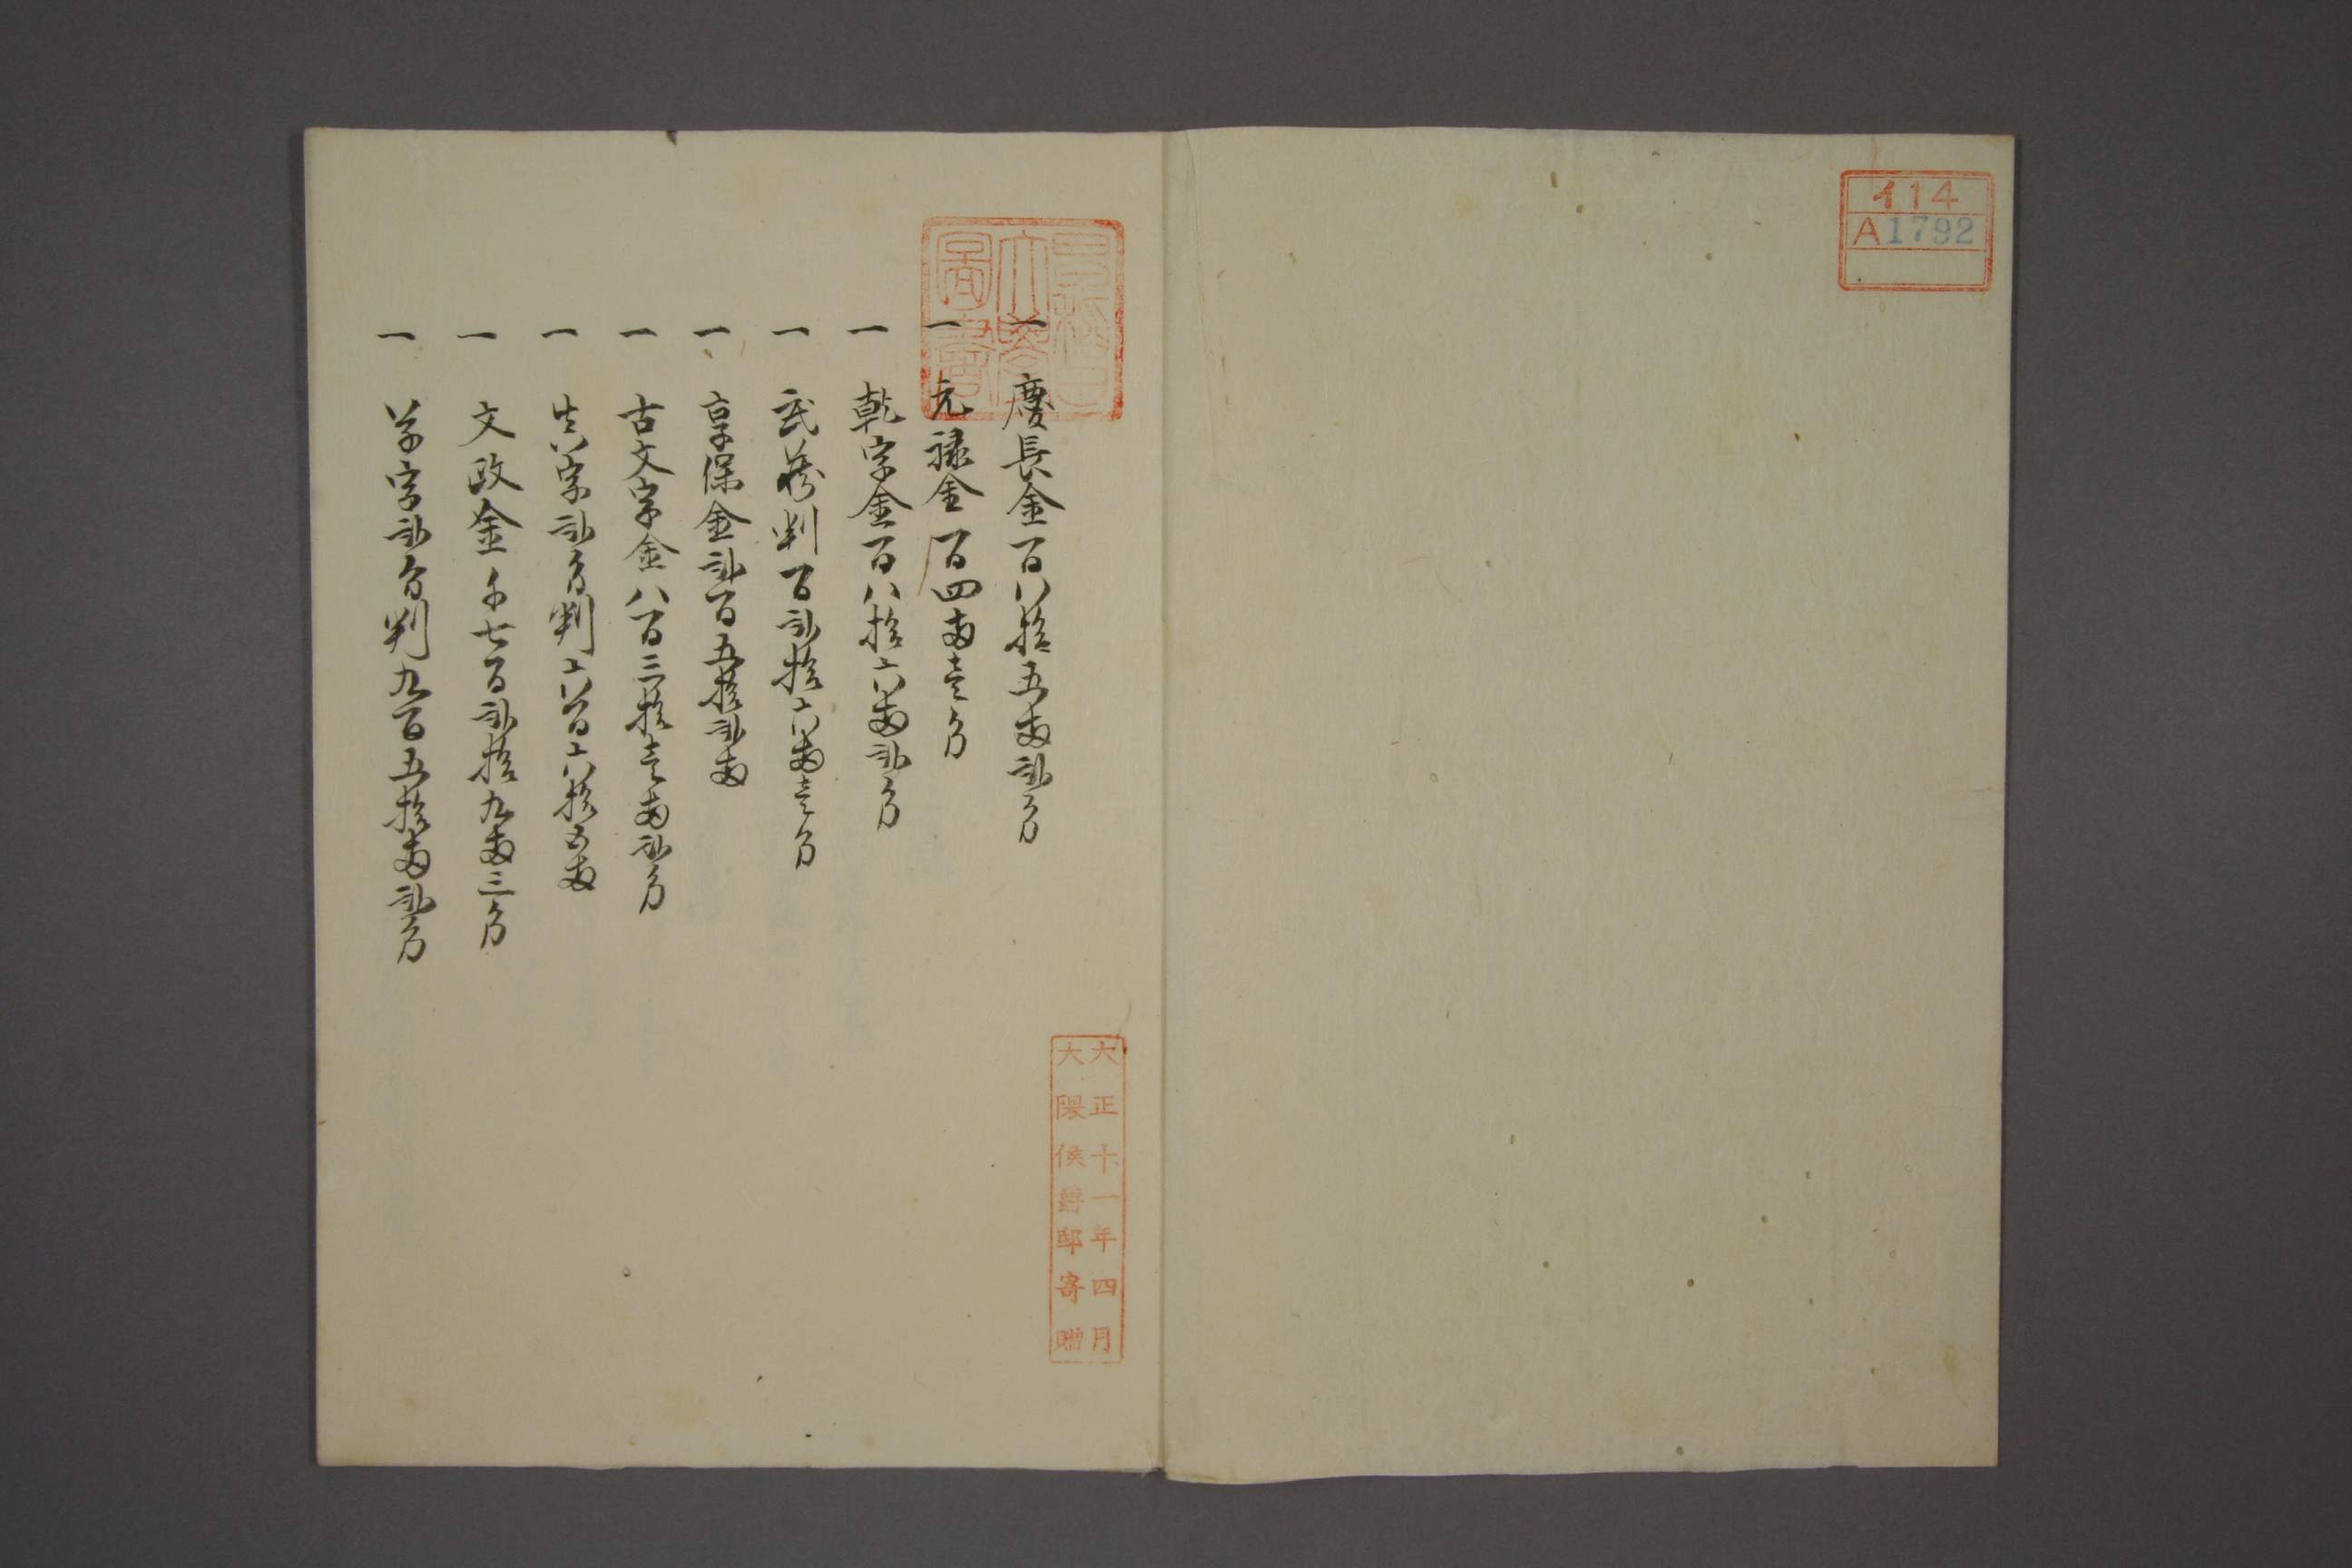 イ14
A1792
早稲田
大學
圖書
一 慶長金百八拾五両弐分
一 元禄金百四両壱分
一 乾字金百八拾六両弐分
一 武蔵判百弐拾六両壱分
一 享保金弐百五拾弐両
一 古文字金八百三拾壱両弐分
一 真字弐分判六百六拾五両
一 文政金千七百弐拾九両三分
一 草字弐分判九百五拾両弐分
大正十一年四月
大隈侯爵邸寄贈